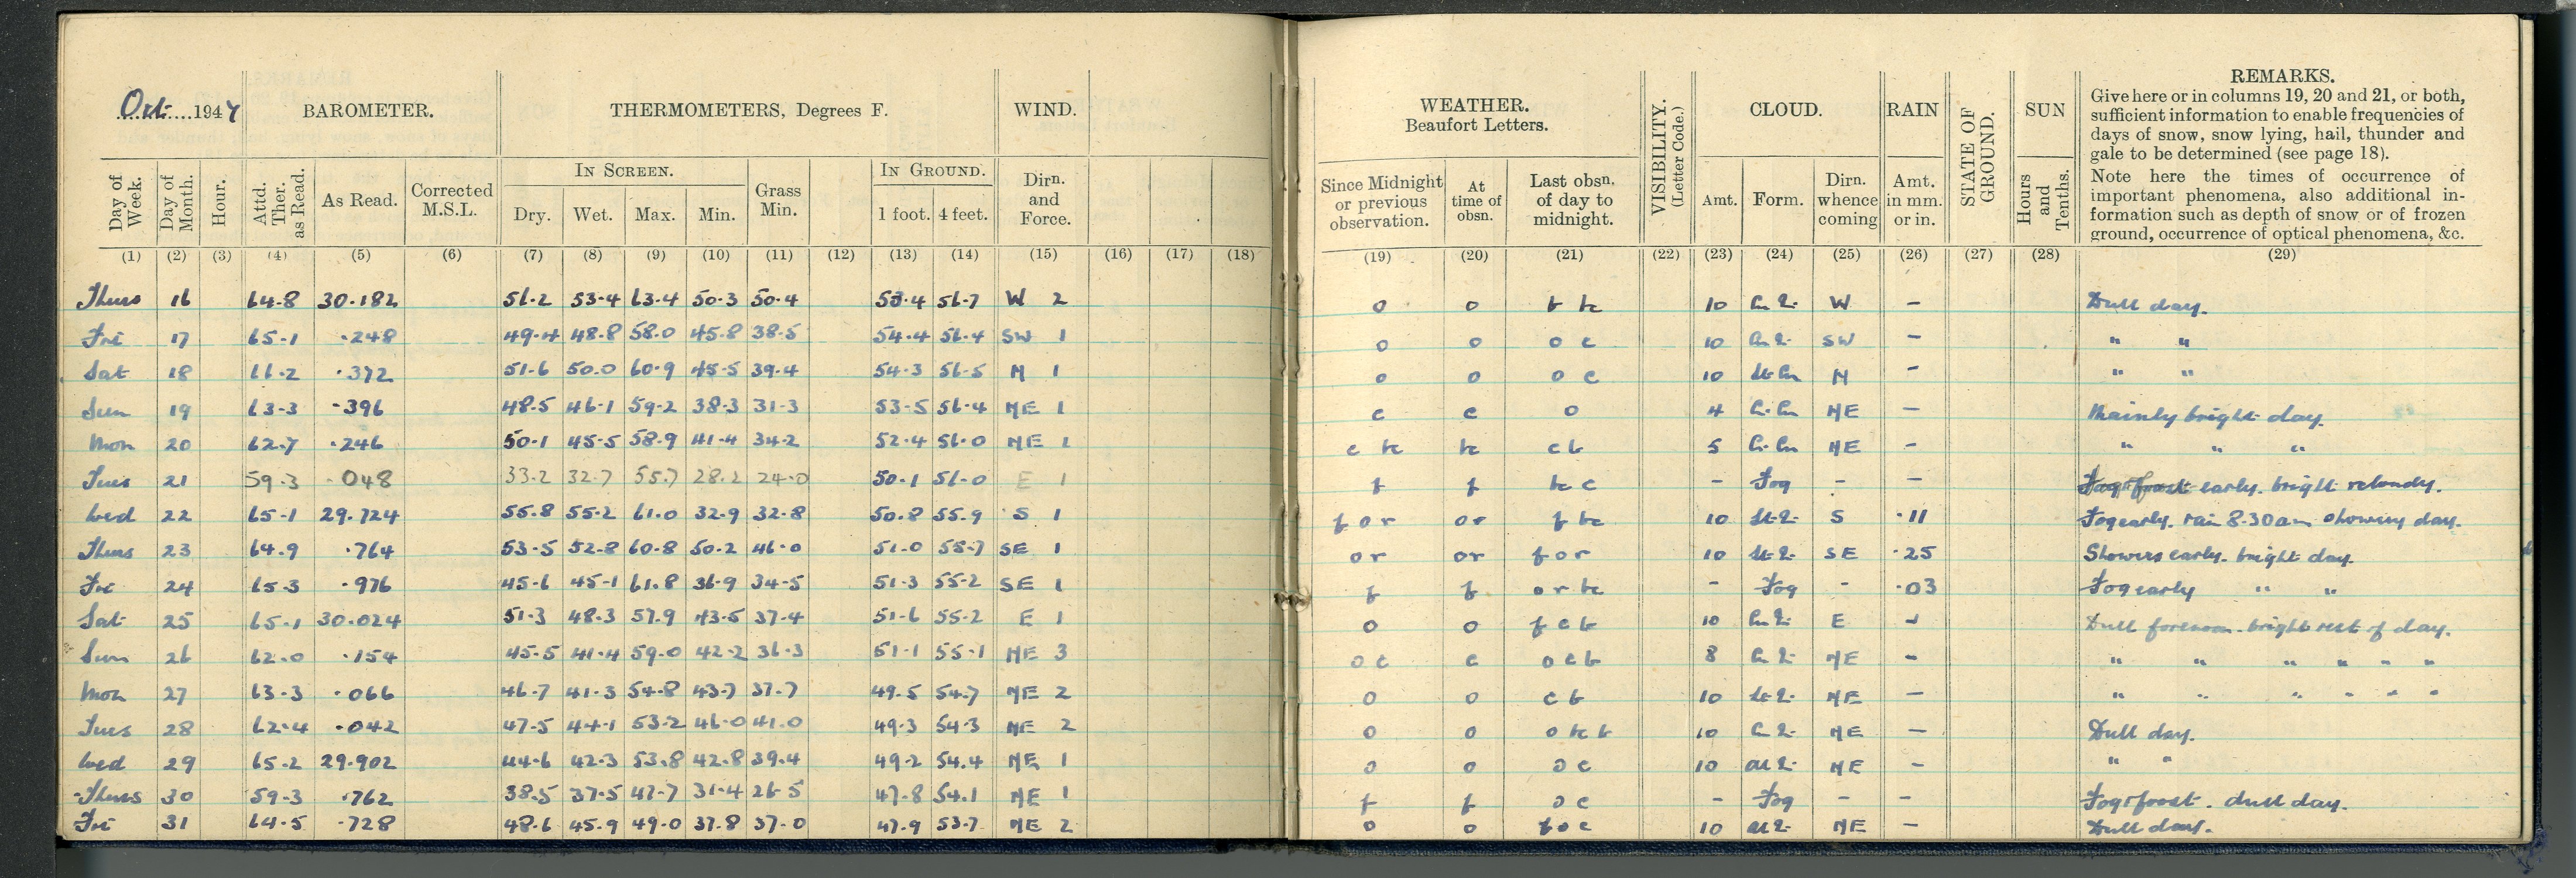 Oct. 1947 BAROMETER. THERMOMETERS, Degrees F. WIND.
Day of Week. Day of Month. Hour. Attd. Ther. as Read. As Read. Corrected M.S.L. IN SCREEN. Dry. Wet. Max. Min. Grass Min. IN GROUND. 1 foot. 4 feet. Dirn. and Force.
(1) (2) (3) (4) (5) (6) (7) (8) (9) (10) (11) (12) (13) (14) (15) (16) (17) (18)
Thurs 16 64.8 30.182 56.2 53.4 63.4 50.3 50.4 53.4 56.7 W 2
Fri 17 65.1 .248 49.4 48.8 58.0 45.8 38.5 54.4 56.4 SW 1
Sat 18 66.2 .372 51.6 50.0 60.9 45.5 39.4 54.3 56.5 N 1
Sun 19 63.3 .396 48.5 46.1 59.2 38.3 31.3 53.5 56.4 NE 1
Mon 20 62.7 .246 50.1 45.5 58.9 41.4 34.2 52.4 56.0 NE 1
Tues 21 59.3 .048 33.2 32.7 55.7 28.2 24.0 50.1 56.0 E 1
Wed 22 65.1 29.724 55.8 55.2 61.0 32.9 32.8 50.8 55.9 S 1
Thurs 23 64.9 .764 53.5 52.8 60.8 50.2 46.0 51.0 55.7 SE 1
Fri 24 65.3 .976 45.6 45.1 61.8 36.9 34.5 51.3 55.2 SE 1
Sat 25 65.1 30.024 51.3 48.3 57.9 43.5 37.4 51.6 55.2 E 1
Sun 26 62.0 .154 45.5 41.4 59.0 42.2 36.3 51.1 55.1 NE 3
Mon 27 63.3 .066 46.7 41.3 54.8 43.7 37.7 49.5 54.7 NE 2
Tues 28 62.4 .042 47.5 44.1 53.2 46.0 41.0 49.3 54.3 NE 2
Wed 29 65.2 29.902 44.6 42.3 53.8 42.8 39.4 49.2 54.4 NE 1
Thurs 30 59.3 .762 38.5 37.5 47.7 31.4 26.5 47.8 54.1 NE 1
Fri 31 64.5 .728 48.6 45.9 49.0 37.8 37.0 47.9 53.7 NE 2
WEATHER. Beaufort Letters. VISIBILITY. (Letter Code.) CLOUD. RAIN STATE OF GROUND. SUN REMARKS.
Give here or in columns 19, 20 and 21, or both,
sufficient information to enable frequencies of
days of snow, snow lying, hail, thunder and
gale to be determined (see page 18).
Note here the times of occurrence of
important phenomena, also additional in-
formation such as depth of snow or of frozen
ground, occurrence of optical phenomena, &c.
Since Midnight or previous observation. At time of obsn. Last obsn. of day to midnight. Amt. Form. Dirn. whence coming Amt. in mm. or in. Hours and Tenths.
(19) (20) (21) (22) (23) (24) (25) (26) (27) (28) (29)
o o b bc 10 W - Dull day.
o o o c 10 SW - " "
o o o c 10 N - " "
c c o 4 NE - Mainly bright day.
c bc bc c b 5 NE - " " "
f f bc c - Fog - - Fog + frost early. bright
f o r o r f bc 10 S .11 Fog early. rain 8.30am showery day.
o r o r f o r 10 SE .25 Showers early. bright day.
f f o r bc - Fog - .03 Fog early " "
o o f c b 10 E - Dull forenoon. bright rest of day.
o c c o c b 8 NE - " " " " " "
o o c b 10 NE - " " " " " "
o o o bc b 10 NE - Dull day.
o o o c 10 NE - " "
f f o c - Fog - - Fog + frost. dull day.
o o f o c 10 NE - Dull day.